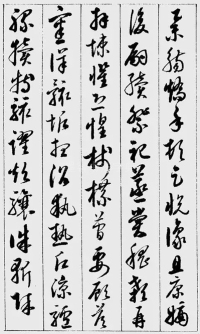 舉觴矯手頓足悅豫且康嫡
後嗣續祭祀蒸嘗稽顙再
拜悚懼恐惶牋牒簡要顧答
審詳骸垢想浴執熱願涼驢
騾犢特駭躍超驤誅斬賊